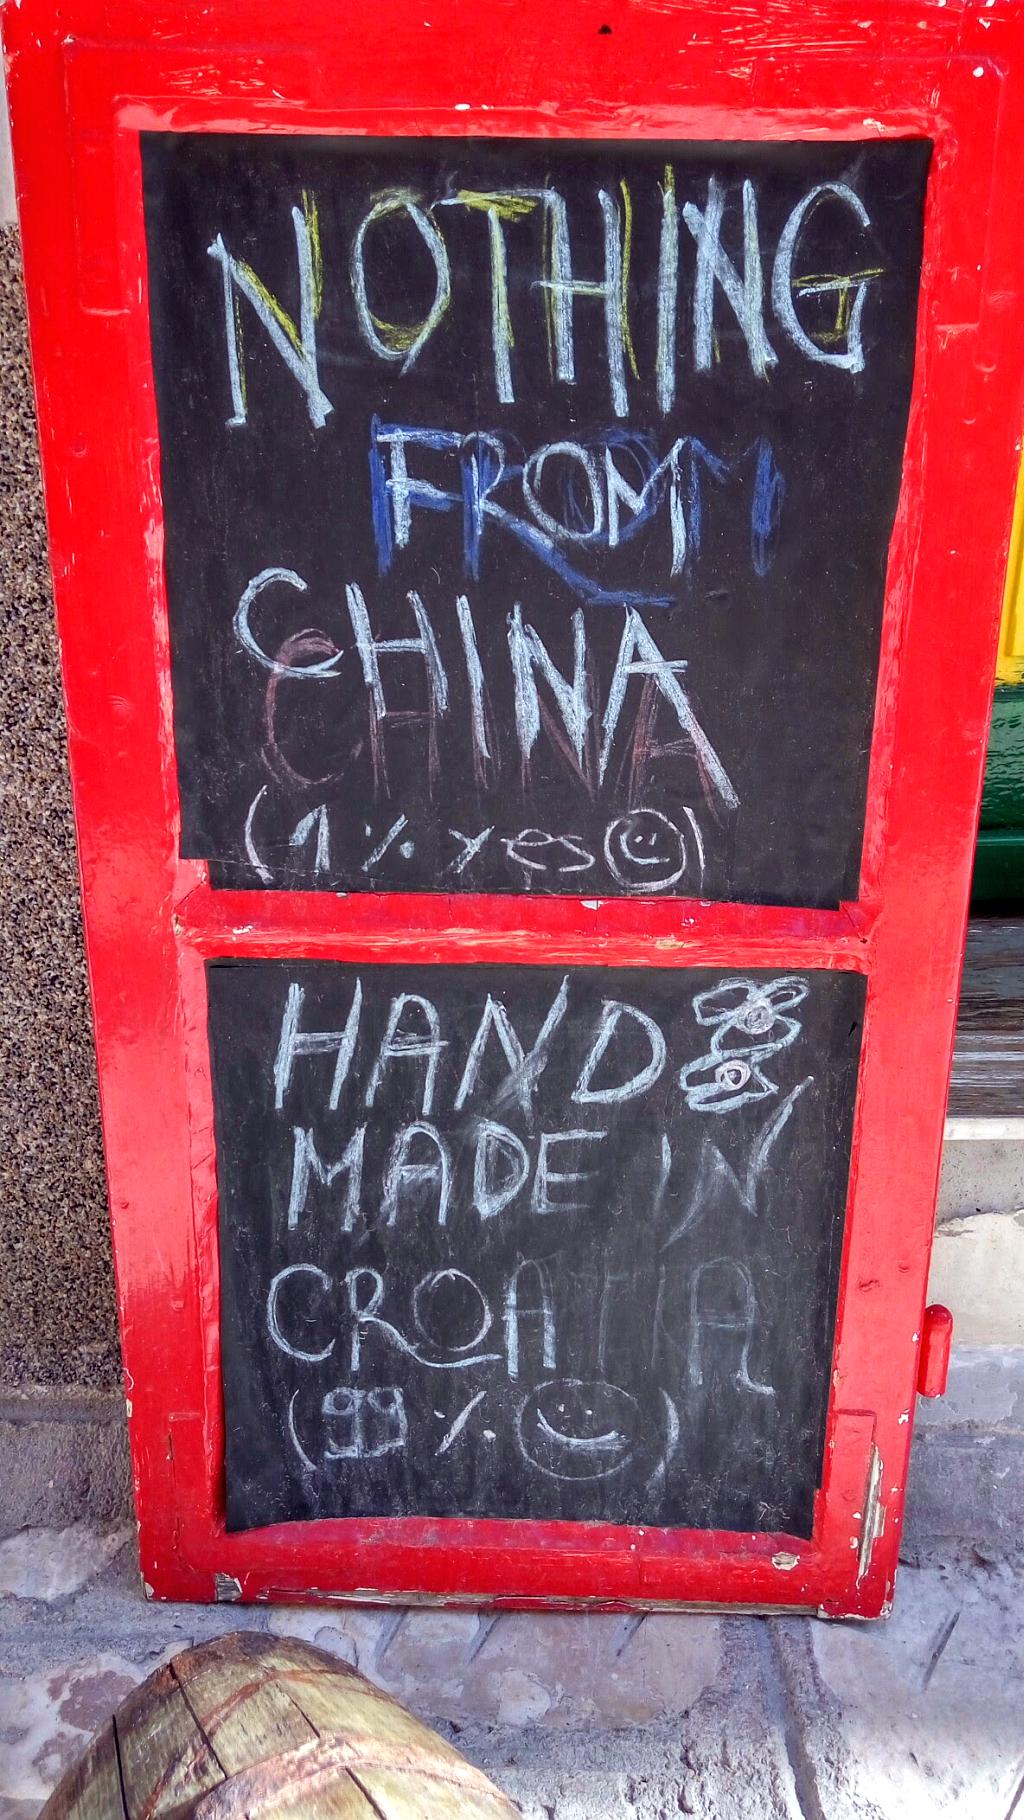 NOTHING
FROM
CHINA
(1% yes☺)
HAND
MADE IN
CROATIA
(99%☺)